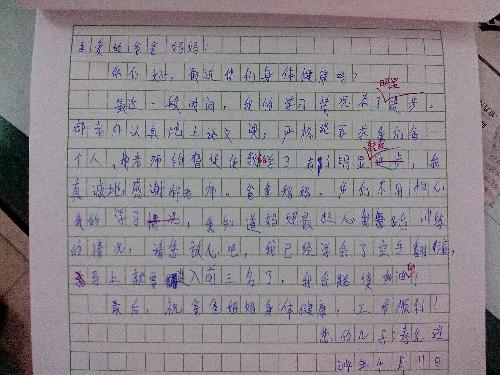 亲爱的爸爸妈妈:
你们好,最近你们身体健康吗?
最近一段时间,我的学习情况有了明显进步。
老师认真地上语文课,严格地要求我们每一
个人,老师的督促使我的学习有了明显进步,我
真诚地感谢老师。爸爸妈妈,你们不用担心
我的学习情况,我知道妈妈最担心我训练
的情况,请您放心吧,我已经学会了空手翻,
马上就要进入前三名了,我会继续加油的!
最后,祝爸爸妈妈身体健康,工作顺利!
您的儿子:
年4月11日